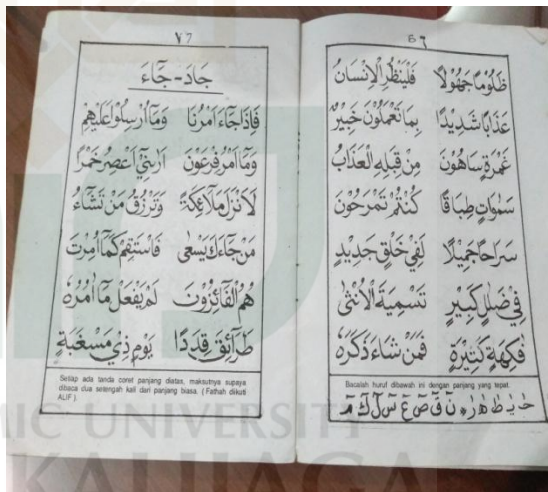 6 ٦
ظَلُوْمًا جَهُوْلًا فَلْيَنْظُرِ الْاِنْسَانُ
عَذَابًا شَدِيْدًا بِمَا تَعْمَلُوْنَ خَبِيْرٌ
غَمْرَةٍ سَاهُوْنَ مِنْ قِبَلِهِ الْعَذَابُ
سَمٰوَاتٍ طِبَاقًا كُنْتُمْ تَمْرَحُوْنَ
سَرَاحًا جَمِيْلًا لَفِيْ خَلْقٍ جَدِيْدٍ
فِيْ ضَلٰلٍ كَبِيْرٍ تَسْمِيَةَ الْاُنْثٰى
فٰكِهَةٍ كَثِيْرَةٍ فَمَنْ شَاءَ ذَكَرَهٗ
Bacalah huruf dibawah ini dengan panjang yang tepat.
حٰ يٰ طٰ هٰ رٰ نٓ قٓ صٓ عٓ سٓ لٓ كٓ مٓ
٧ 7
جَادَ - جَآءَ
فَاِذَا جَآءَ اَمْرُنَا وَمَآ اُرْسِلُوْا عَلَيْهِمْ
وَمَآ اَمْرُ فِرْعَوْنَ اَرٰنِيْٓ اَعْصِرُ خَمْرًا
لَاَنْزَلَ مَلَآئِكَةً وَتَرْزُقُ مَنْ تَشَآءُ
مَنْ جَآءَكَ يَسْعٰى فَاسْتَقِمْ كَمَآ اُمِرْتَ
هُمُ الْفَآئِزُوْنَ لَمْ يَفْعَلْ مَآ اٰمُرُهٗ
طَرَآئِقَ قِدَدًا يَوْمٍ ذِيْ مَسْغَبَةٍ
Setiap ada tanda coret panjang diatas, maksutnya supaya
dibaca dua setengah kali dari panjang biasa. ( Fathah diikuti
ALIF ).
MIC UNIVERSITY
KALIJAGA